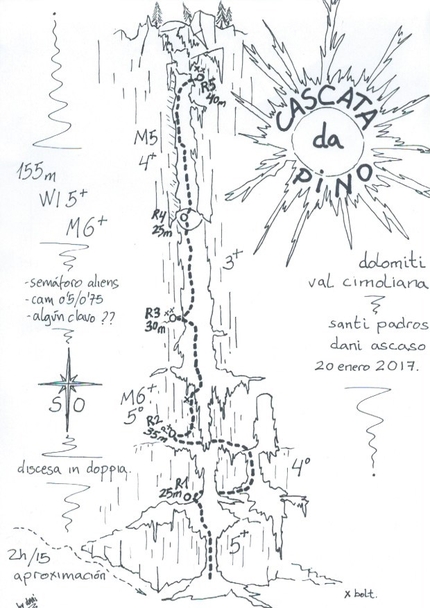 CASCATA
da
PINO
R5
40m
M5
4+
155m
WI 5+
M6+
R4
25m
3+
dolomiti
val cimoliana
-semáforo aliens
-cam 0'5/0'75
-algún clavo ??
R3
30m
santi padros
dani ascaso
20 enero 2017.
S O
M6+
5º
R2
35m
4º
discesa in doppia.
R1
25m
5+
2h/15
aproximación
x bolt.
by dani